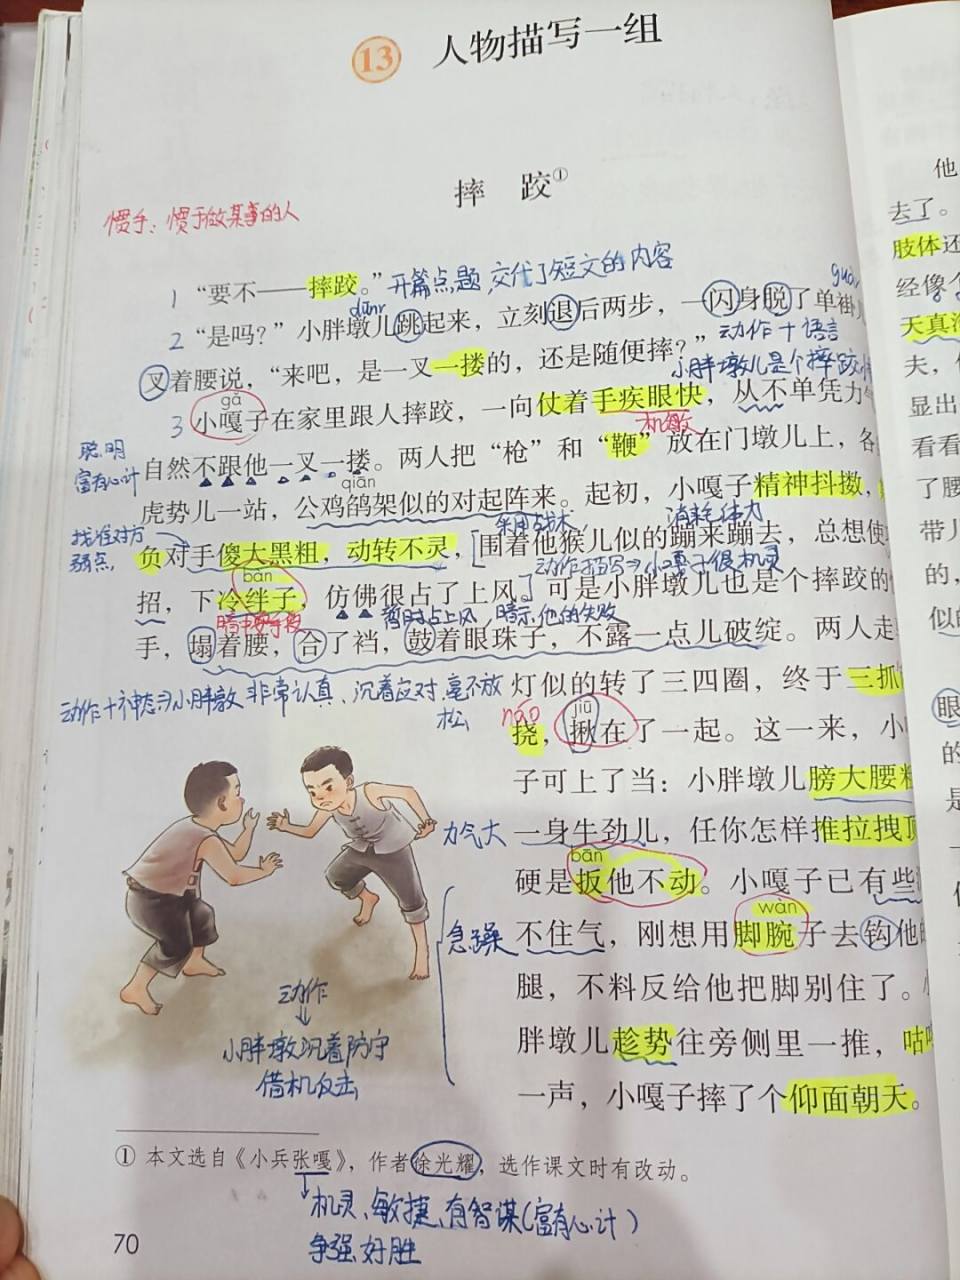 13 人物描写一组
摔 跤①
惯手：惯于做某事的人
1 “要不——摔跤。”开篇点题，交代了短文的内容
dūnr
2 “是吗？”小胖墩儿跳起来，立刻退后两步，一闪身脱了单褂儿
动作＋语言
叉着腰说，“来吧，是一叉一搂的，还是随便摔？”
小胖墩儿是个摔跤
gā
3 小嘎子在家里跟人摔跤，一向仗着手疾眼快，从不单凭力
机敏
聪明
富有心计
自然不跟他一叉一搂。两人把“枪”和“鞭”放在门墩儿上，各
qiān
虎势儿一站，公鸡鹐架似的对起阵来。起初，小嘎子精神抖擞，
找准对方
弱点
采用战术
消耗体力
负对手傻大黑粗，动转不灵，围着他猴儿似的蹦来蹦去，总想使
动作描写⇒小嘎子很机灵
bàn
招，下冷绊子，仿佛很占了上风。可是小胖墩儿也是个摔跤的
暗中耍手段
暂时占上风，暗示他的失败
手，塌着腰，合了裆，鼓着眼珠子，不露一点儿破绽。两人走
动作＋神态⇒小胖墩非常认真、沉着应对，毫不放
松
灯似的转了三四圈，终于三抓
náo
jiū
挠，揪在了一起。这一来，小
子可上了当：小胖墩儿膀大腰
力气大
一身牛劲儿，任你怎样推拉拽顶
bān
硬是扳他不动。小嘎子已有些
wàn
急躁
不住气，刚想用脚腕子去钩他
腿，不料反给他把脚别住了。
胖墩儿趁势往旁侧里一推，咕
一声，小嘎子摔了个仰面朝天。
动作
↓
小胖墩沉着防守
借机反击
① 本文选自《小兵张嘎》，作者徐光耀，选作课文时有改动。
机灵、敏捷、有智谋（富有心计）
争强好胜
70
他
去了。
肢体还
经像
天真
夫，
显出
看看
了腰
带儿
的，
似的
眼
的
是